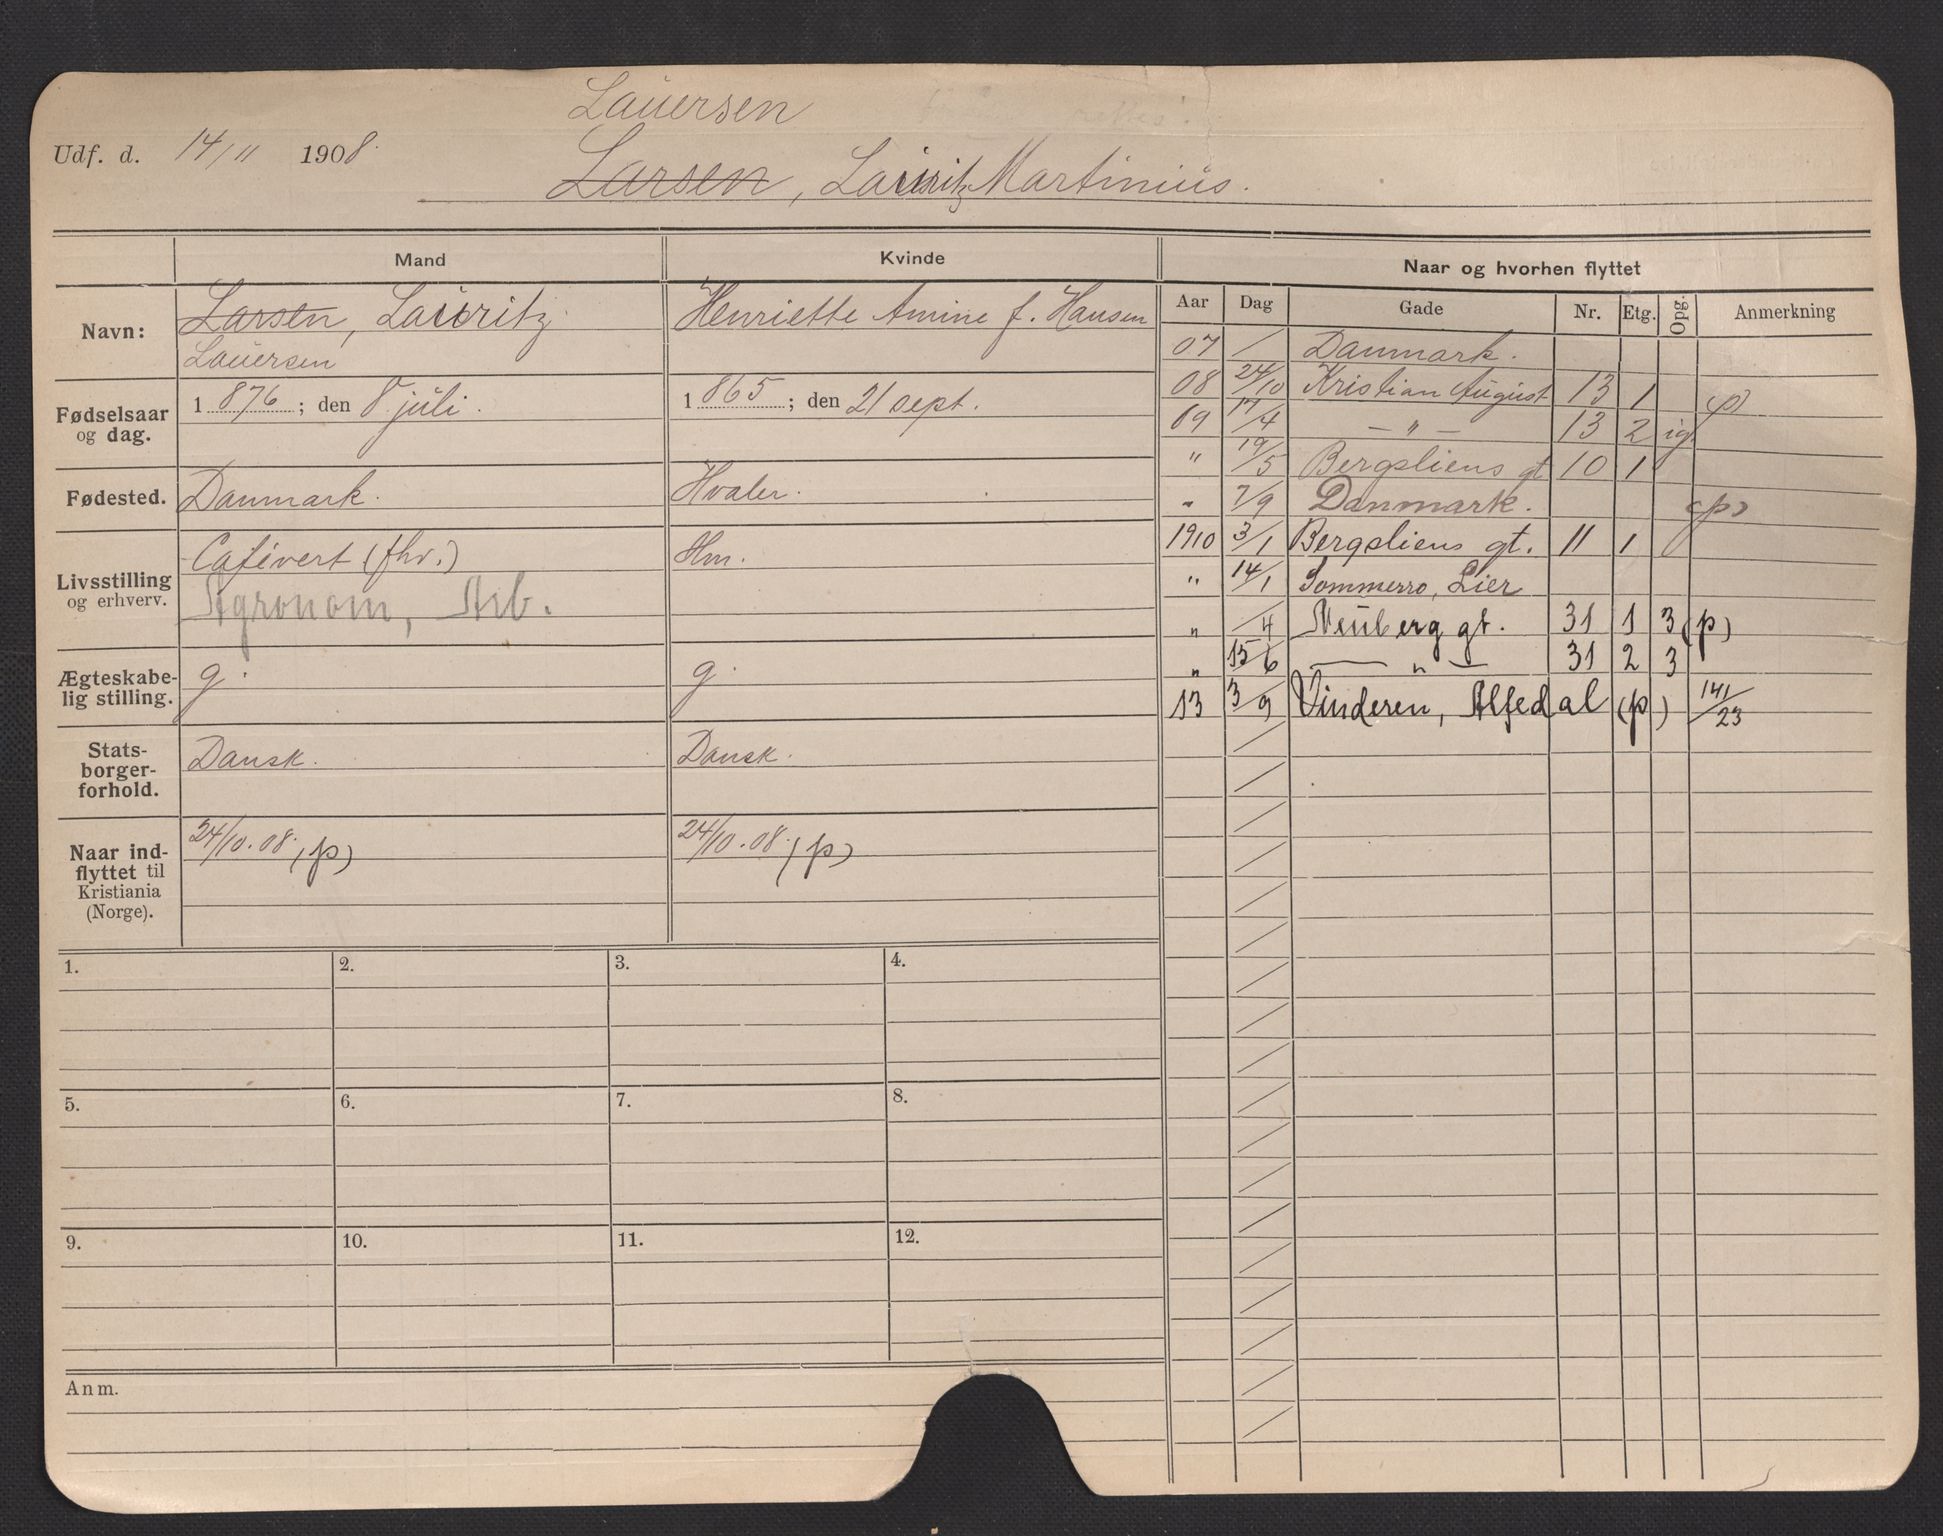 Lauersen
Udf. d. 14/11 1908.
Larsen, Lauritz Martinius.
Mand
Kvinde
Naar og hvorhen flyttet
Navn:
Larsen, Lauritz
Lauersen
Henriette Amine f. Hansen
Fødselsaar og dag.
1876; den 8 juli.
1865; den 21 sept.
Fødested.
Danmark.
Hvaler.
Livsstilling og erhverv.
Cafévert (fhv.)
Agronom, Arb.
Hm.
Ægteskabe-
lig stilling.
g.
g.
Stats-
borger-
forhold.
Dansk.
Dansk.
Naar ind-
flyttet til
Kristiania
(Norge).
24/10.08. (p)
24/10.08. (p)
Aar Dag Gade Nr. Etg. Opg. Anmerkning
07 / Danmark.
08 24/10 Kristian August 13 1 (p)
09 17/4 — " — 13 2 ig.
" 19/5 Bergsliens gt 10 1
" 7/9 Danmark. (p)
1910 3/1 Bergsliens gt. 11 1
" 14/1 Sommerro, Lier
" /4 Neuberg gt. 31 1 3 (p)
" 15/6 — " — 31 2 3
13 3/9 Vinderen, Alfedal (p) 141/23
1. 2. 3. 4.
5. 6. 7. 8.
9. 10. 11. 12.
Anm.